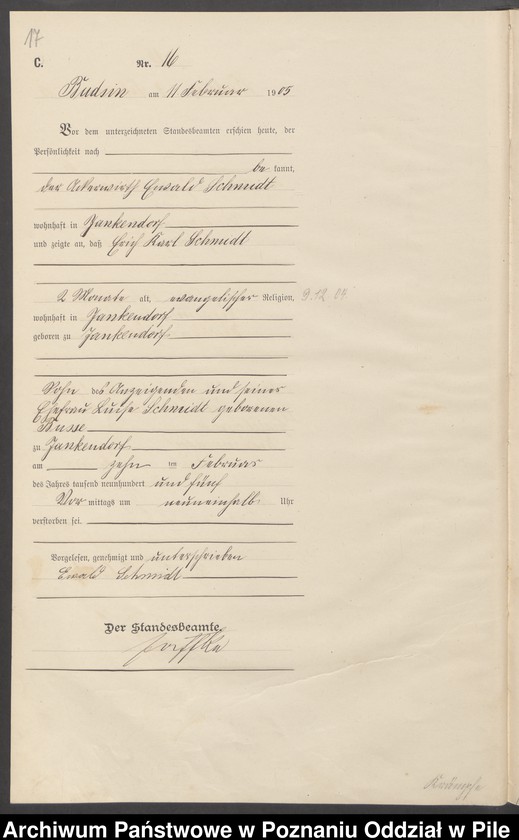 17
C. Nr. 16
Budsin am 11 Februar 1905
Vor dem unterzeichneten Standesbeamten erschien heute, der
Persönlichkeit nach
be kannt,
der Ackerwirth Ewald Schmidt
wohnhaft in Jankendorf
und zeigte an, daß Erich Karl Schmidt
2 Monate alt, evangelischer Religion, 9.12.04
wohnhaft in Jankendorf
geboren zu Jankendorf
Sohn des Anzeigenden und seiner
Ehefrau Luise Schmidt geborenen
Busse
zu Jankendorf
am zehn ten Februar
des Jahres tausend neunhundert und fünf
Vor mittags um neuneinhalb Uhr
verstorben sei.
Vorgelesen, genehmigt und unterschrieben
Ewald Schmidt
Der Standesbeamte.
Archiwum Państwowe w Poznaniu Oddział w Pile